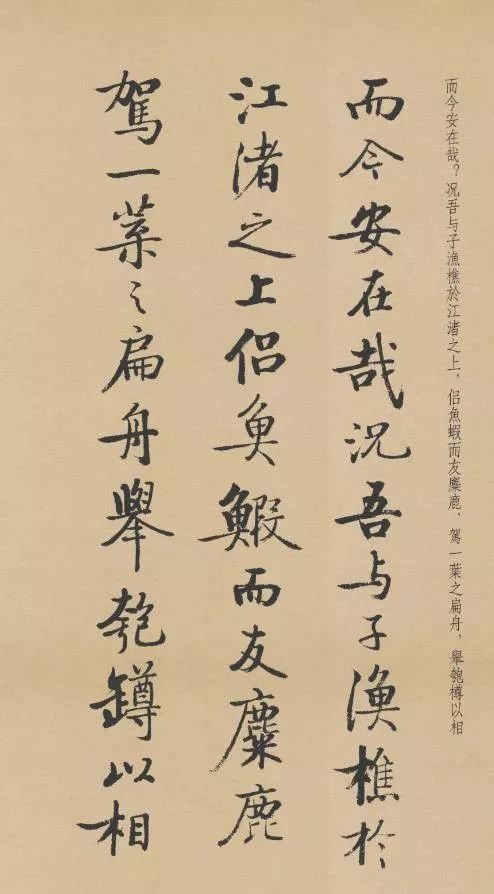 而今安在哉？况吾与子漁樵於江渚之上，侣魚蝦而友麋鹿，駕一葉之扁舟，舉匏樽以相
而今安在哉况吾与子漁樵於
江渚之上侣魚鰕而友麋鹿
駕一葉之扁舟舉匏鐏以相